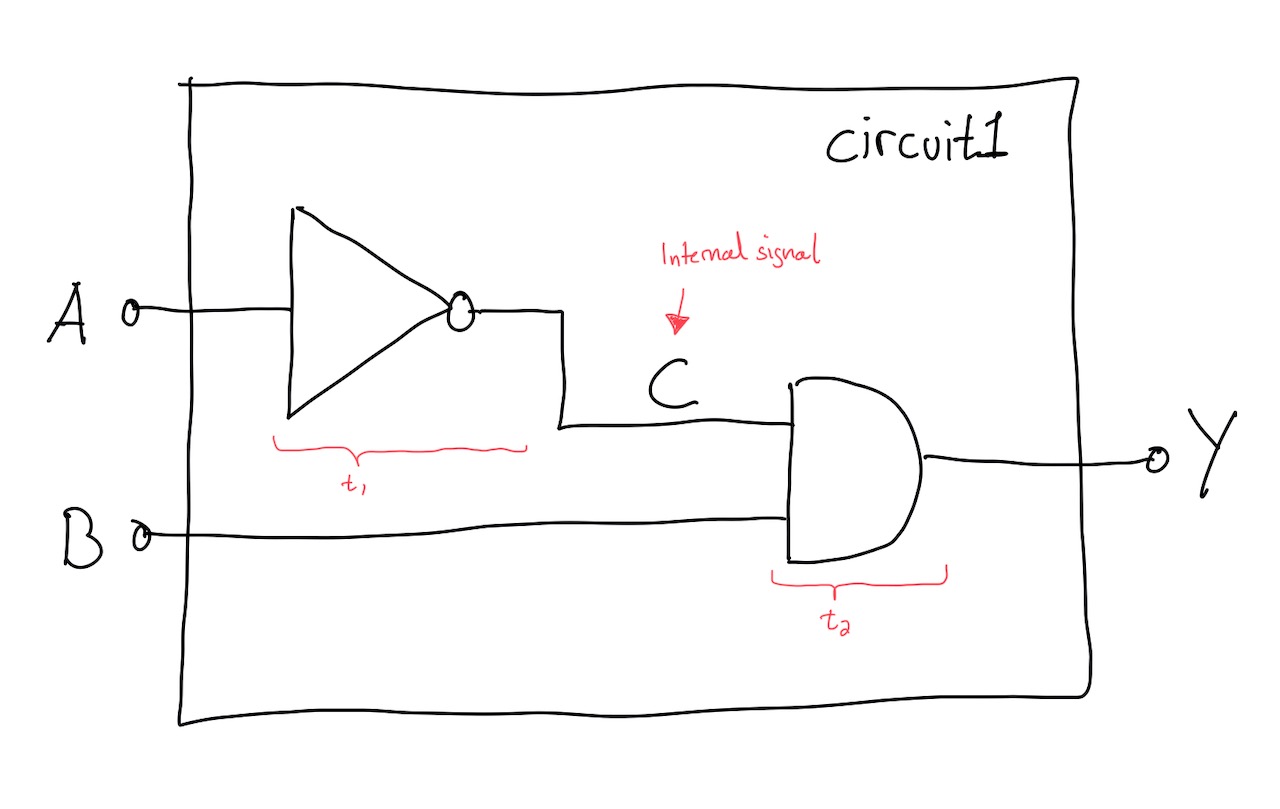 circuit1
Internal signal
A
C
t₁
B
Y
t₂